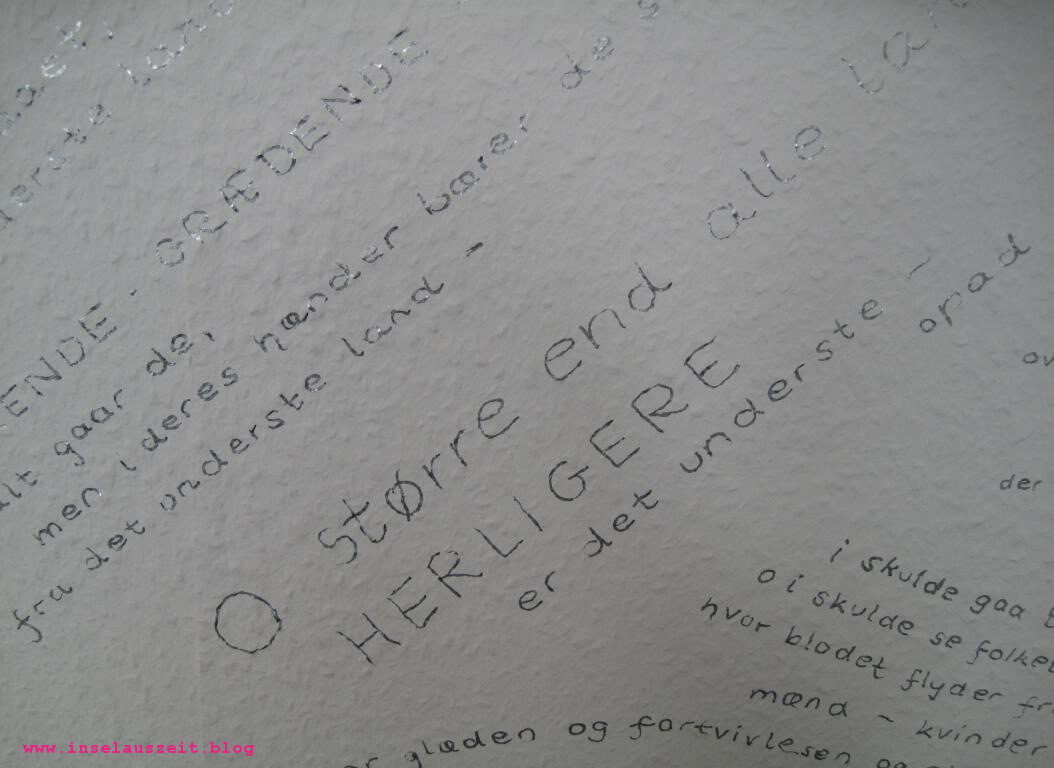 GRÆDENDE
gaar de,
men i deres hænder bærer de
fra det underste land -
O større end alle
HERLIGERE
er det underste -
opad
der
i skulde gaa
o i skulde se folket
hvor blodet flyder
mænd - kvinder
glæden og fortvivlesen og
www.inselauszeit.blog